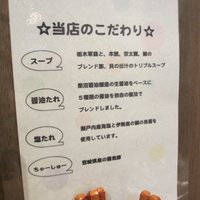 ☆当店のこだわり☆
スープ
栃木軍鶏と、本鰹、宗太鰹、鯖の
ブレンド節、貝の出汁のトリプルスープ
醤油たれ
醤油醸造の生醤油をベースに
5種類の醤油を独自の製法で
ブレンドしました。
塩たれ
瀬戸内産海藻と伊勢産の鯛の塩醤を
使用しています。
ちゃーしゅー
宮崎県産の